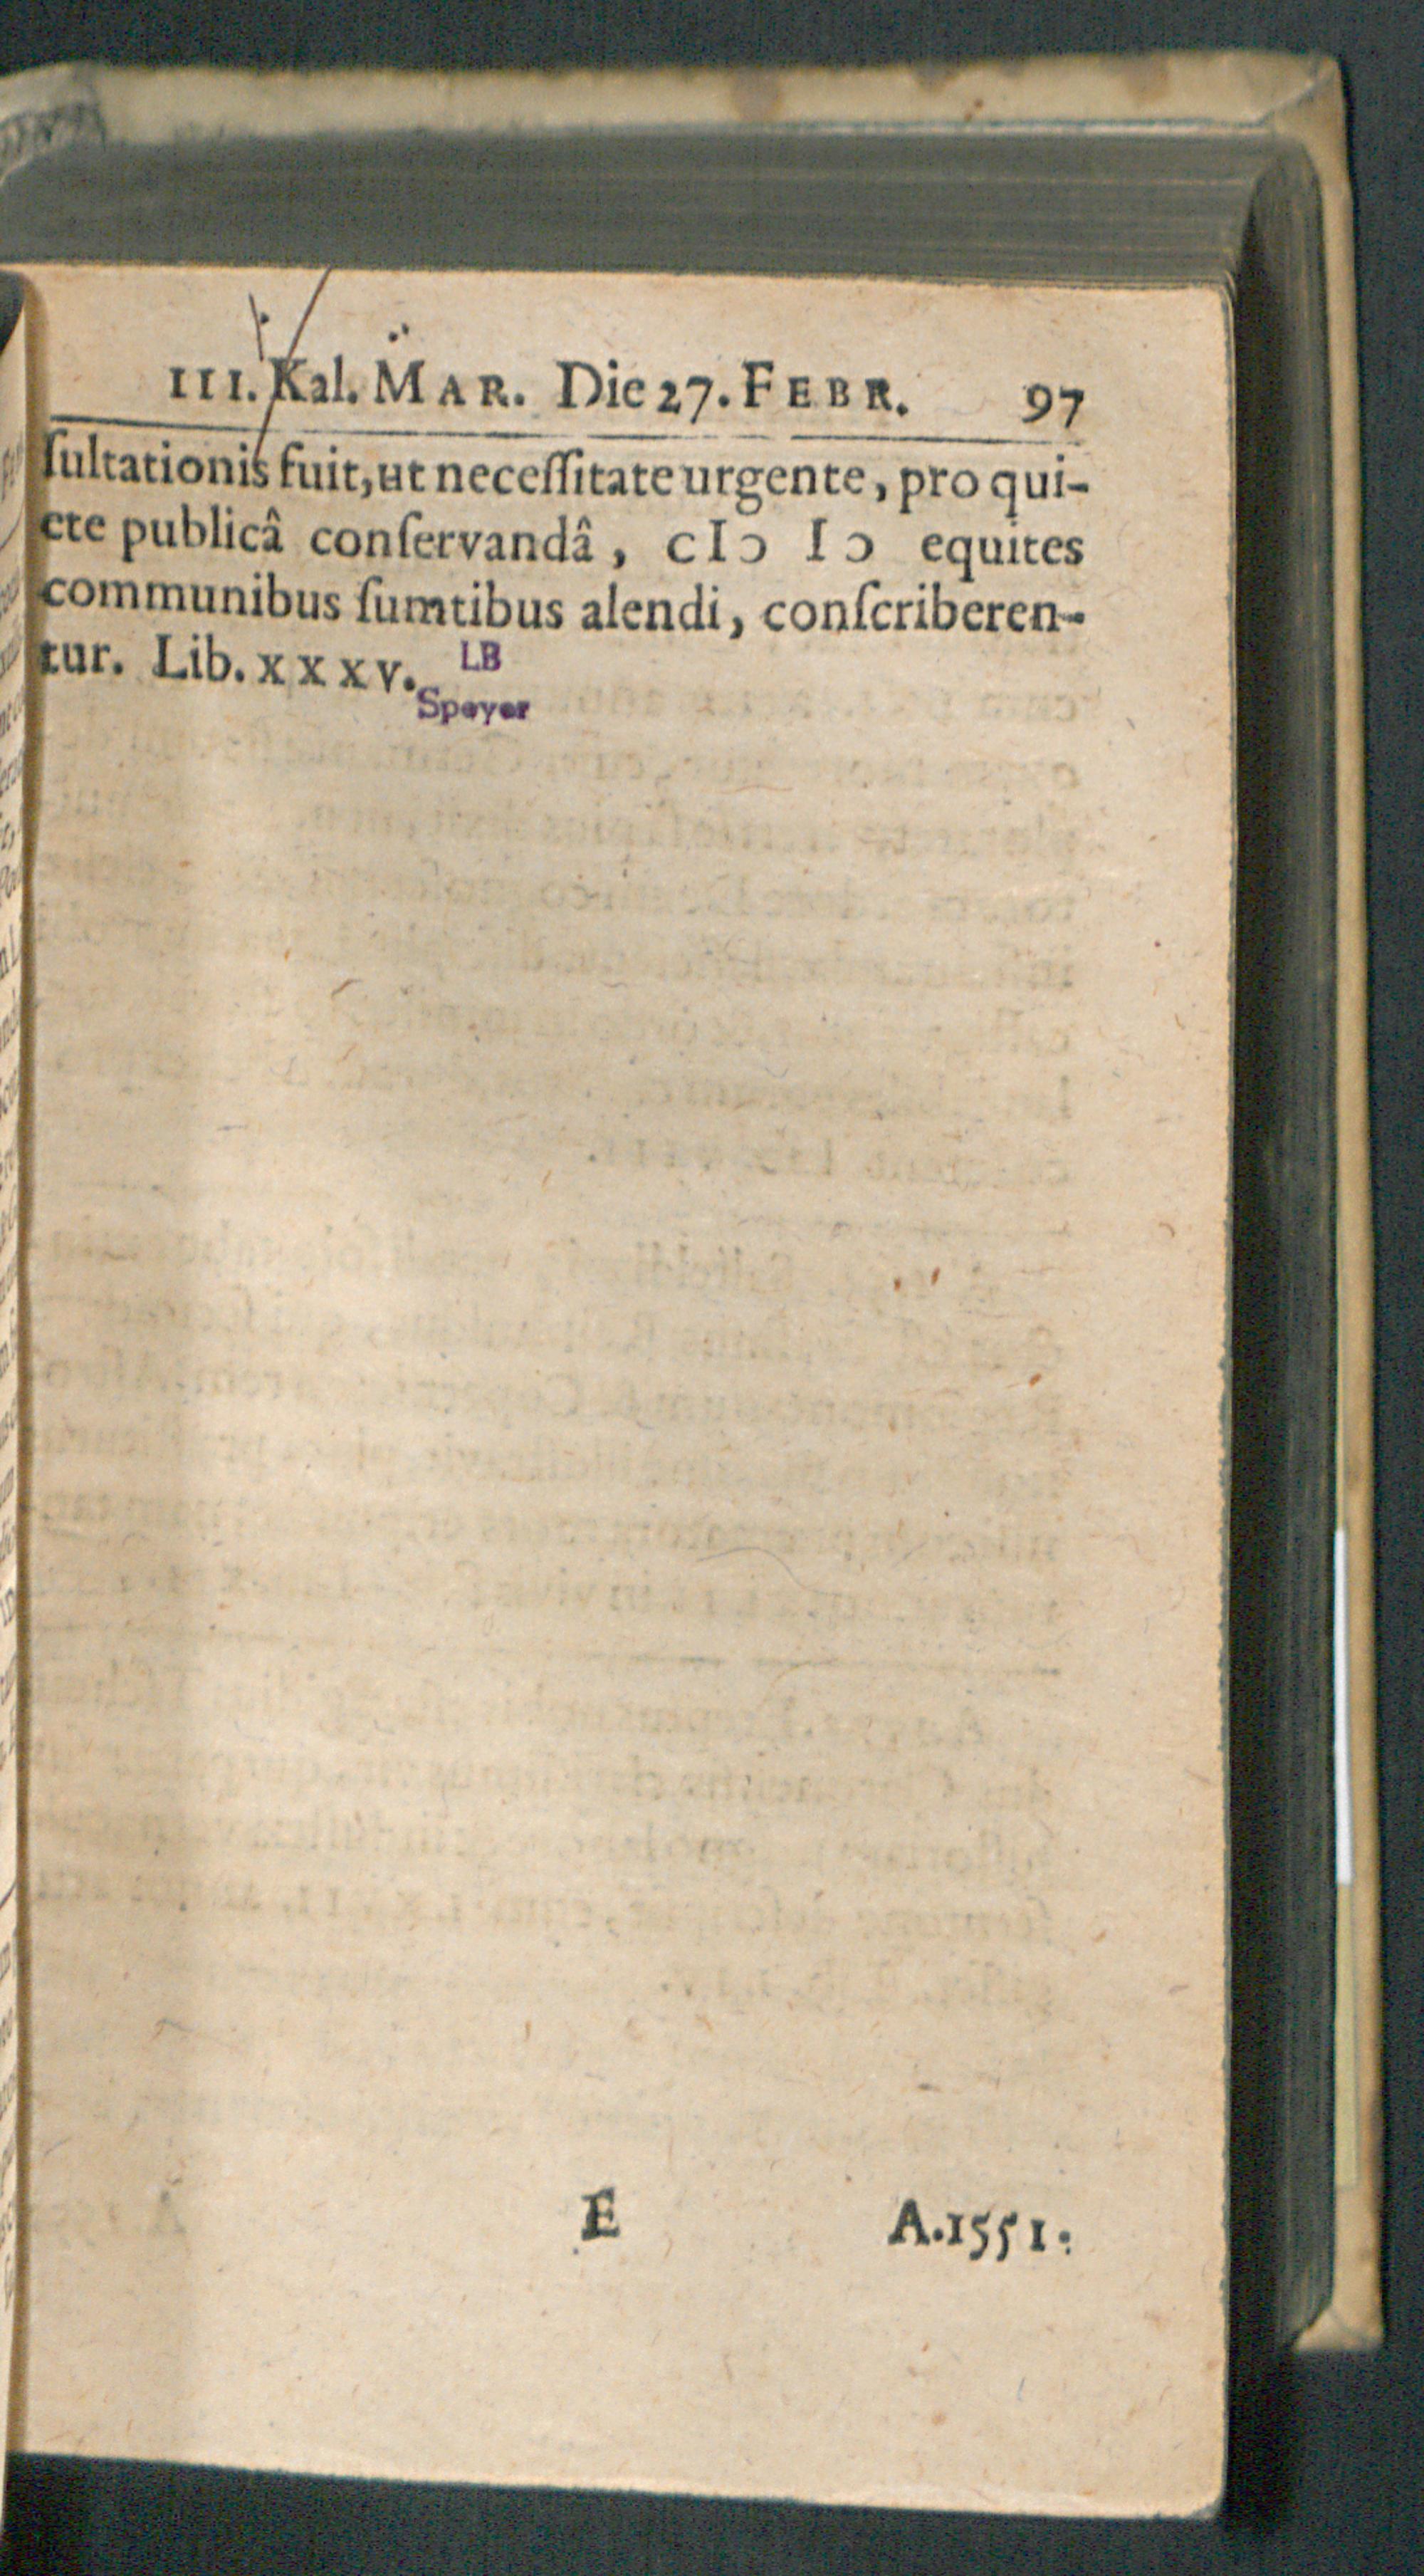 III. Kal. MAR. Die 27. FEBR. 97
ſultationis fuit, ut neceſſitate urgente, pro qui-
ete publicâ conſervandâ, cIↄ Iↄ equites
communibus ſumtibus alendi, conſcriberen-
tur. Lib. XXXV.
LB
Speyer
E A. 1551: